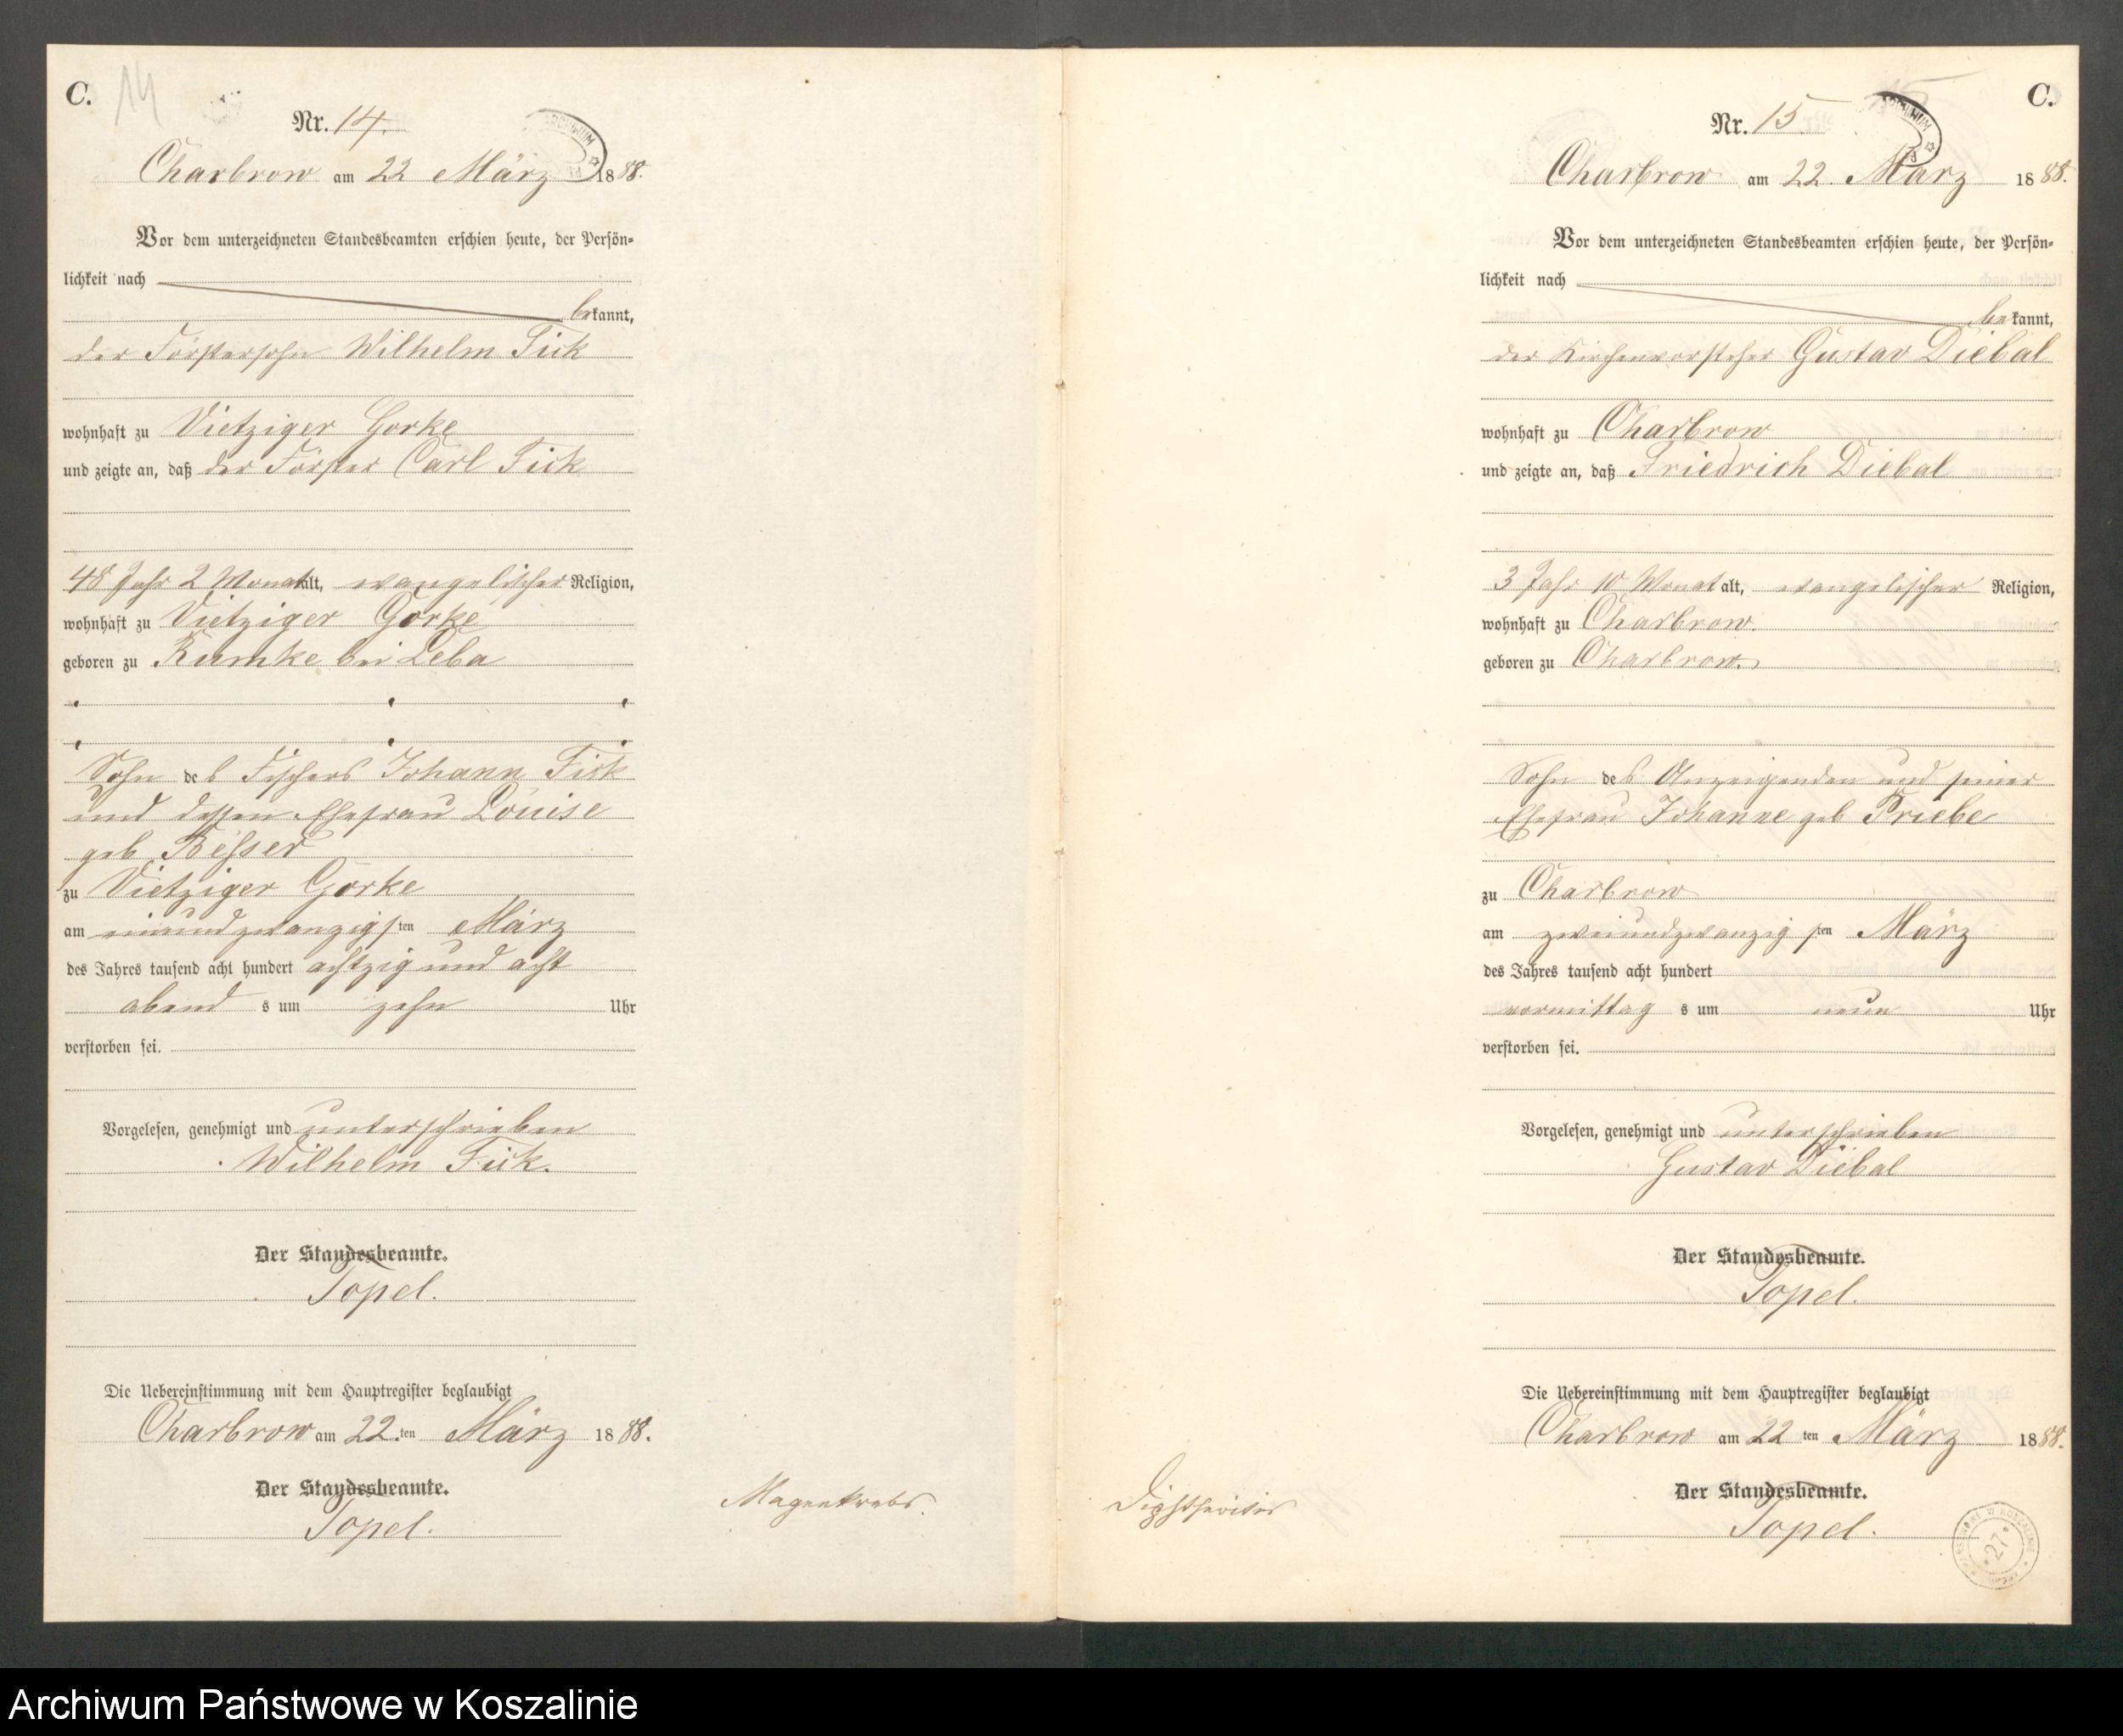 C.
14
Nr. 14.
Charbrow am 22 März 1888.
Vor dem unterzeichneten Standesbeamten erschien heute, der Persön-
lichkeit nach
bekannt,
der Förstersohn Wilhelm Fick
wohnhaft zu Vietziger Gorke
und zeigte an, daß der Förster Carl Fick
48 Jahr 2 Monat alt, evangelischer Religion,
wohnhaft zu Vietziger Gorke
geboren zu Rumke bei Leba
Sohn des Fischers Johann Fick
und dessen Ehefrau Louise
geb Besser
zu Vietziger Gorke
am einundzwanzigsten März
des Jahres tausend acht hundert achtzig und acht
abends um zehn Uhr
verstorben sei.
Vorgelesen, genehmigt und unterschrieben
Wilhelm Fick.
Der Standesbeamte.
Topel.
Die Uebereinstimmung mit dem Hauptregister beglaubigt
Charbrow am 22.ten März 1888.
Der Standesbeamte.
Topel.
Magenkrebs.
C.
15
Nr. 15
Charbrow am 22. März 1888.
Vor dem unterzeichneten Standesbeamten erschien heute, der Persön-
lichkeit nach
bekannt,
der Kirchenvorsteher Gustav Diebal
wohnhaft zu Charbrow
und zeigte an, daß Friedrich Diebal
3 Jahr 10 Monat alt, evangelischer Religion,
wohnhaft zu Charbrow.
geboren zu Charbrow.
Sohn des Anzeigenden und seiner
Ehefrau Johanne geb Priebe
zu Charbrow
am zweiundzwanzigsten März
des Jahres tausend acht hundert
vormittags um neun Uhr
verstorben sei.
Vorgelesen, genehmigt und unterschrieben
Gustav Diebal
Der Standesbeamte.
Topel.
Die Uebereinstimmung mit dem Hauptregister beglaubigt
Charbrow am 22 ten März 1888.
Der Standesbeamte.
Topel.
Diphtheritis
27
Archiwum Państwowe w Koszalinie